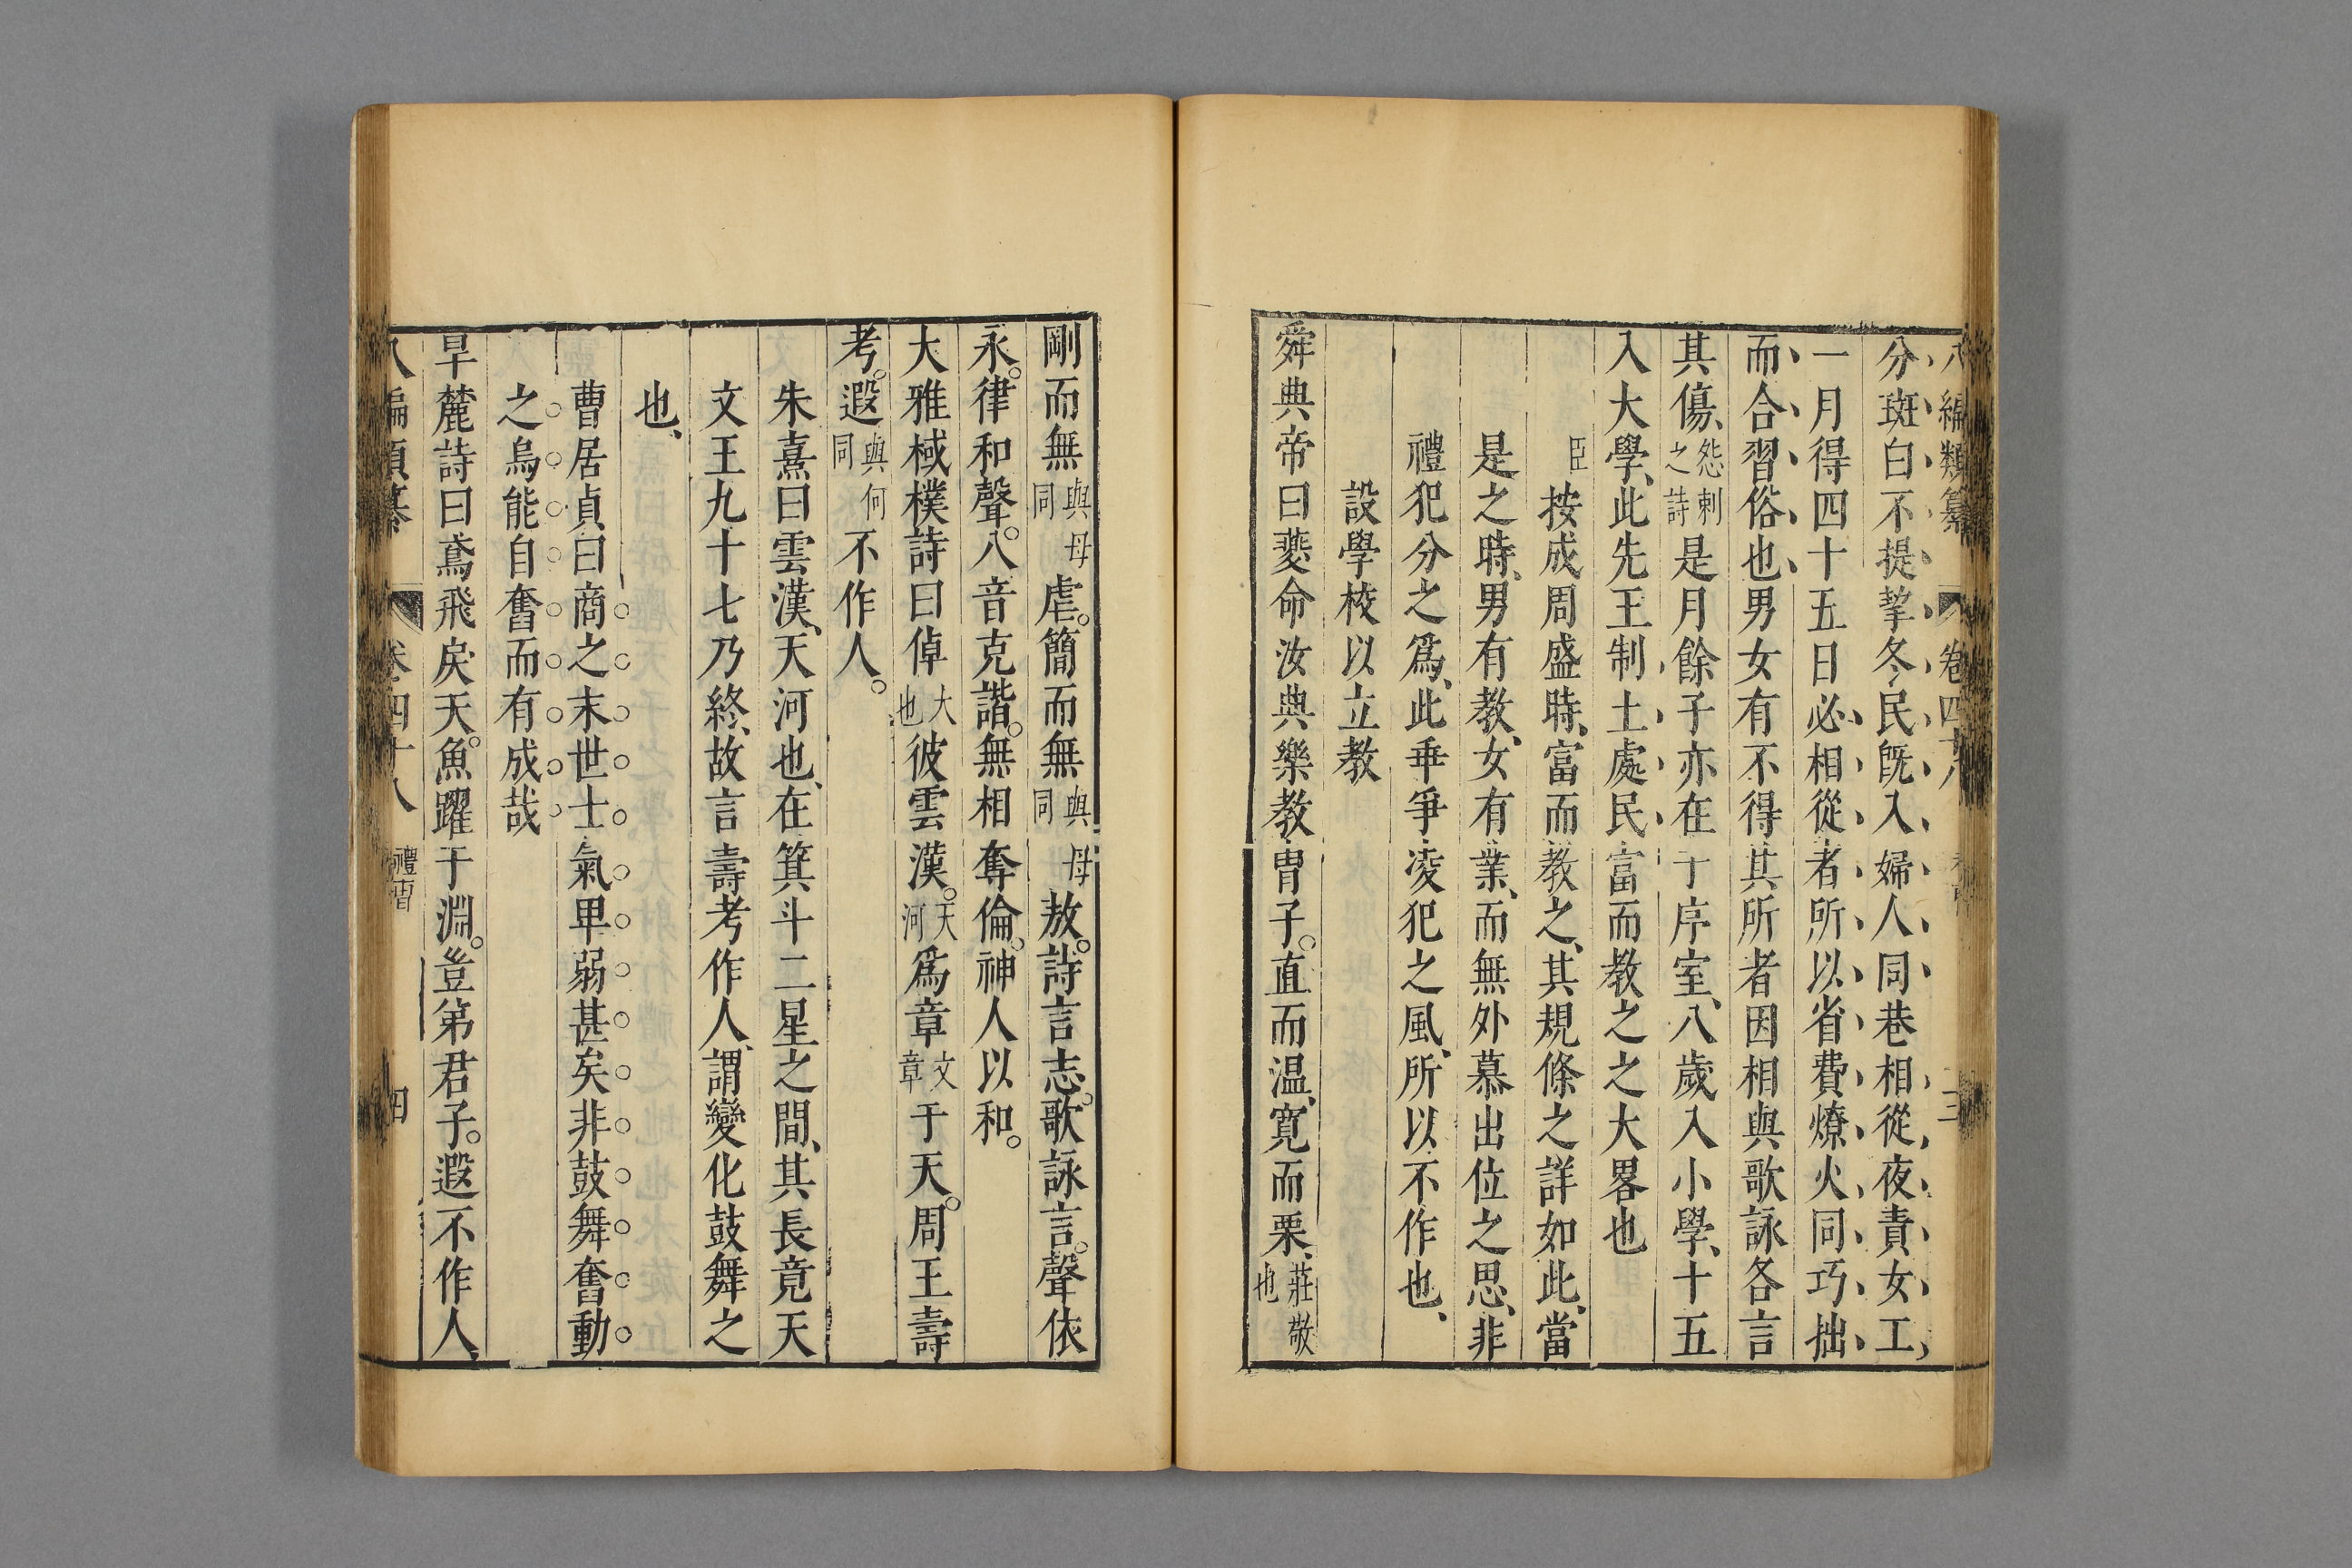 八編類纂 卷四十八 三
分斑白不提挈冬民既入婦人同巷相從夜責女工
一月得四十五日必相從者所以省費燎火同巧拙
而合習俗也男女有不得其所者因相與歌詠各言
其傷、怨刺之詩是月餘子亦在于序室、八歲入小學、十五
入大學、此先王制土處民富而教之之大畧也
臣按成周盛時、富而教之、其規條之詳如此、當
是之時、男有教、女有業、而無外慕出位之思、非
禮犯分之爲、此乖爭凌犯之風、所以不作也、
設學校以立教
舜典帝曰夔命汝典樂教冑子。直而温、寛而栗、莊敬也
剛而無與毋同虐。簡而無與毋同敖。詩言志。歌詠言。聲依
永。律和聲。八音克諧。無相奪倫。神人以和。
大雅棫樸詩曰倬大也彼雲漢。天河爲章文章于天。周王壽
考。遐與何同不作人。
朱熹曰雲漢、天河也、在箕斗二星之間、其長竟天
文王九十七乃終、故言壽考作人、謂變化鼓舞之
也、
曹居貞曰商之末世士氣卑弱甚矣非鼓舞奮動
之烏能自奮而有成哉
旱麓詩曰鳶飛戾天。魚躍于淵。豈弟君子。遐不作人、
八編類纂 卷四十八 禮曹 四